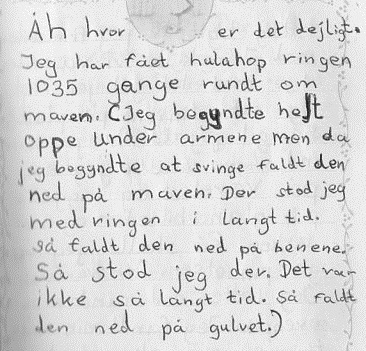 Åh hvor er det dejligt.
Jeg har fået hulahop ringen
1035 gange rundt om
maven. (Jeg begyndte helt
oppe under armene men da
jeg begyndte at svinge faldt den
ned på maven. Der stod jeg
med ringen i langt tid.
så faldt den ned på benene.
Så stod jeg der. Det var
ikke så langt tid. Så faldt
den ned på gulvet.)